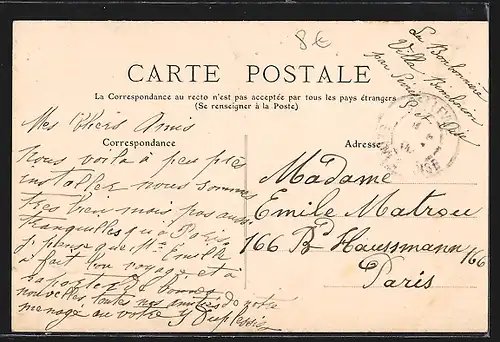 8€
La Bonbonnière
Villa
par
S. et Oise
CARTE POSTALE
La Correspondance au recto n'est pas acceptée par tous les pays étrangers
(Se renseigner à la Poste)
Correspondance
Adresse
Mes Chers Amis
Nous voilà à peu pré
installer nous sommes
très bien mais pas aussi
tranquilles qu'à Paris
je pense que Mr Emille
a fait bon voyage et à
rapporter de bonnes
nouvelles, toutes nos amitiés de notre
menage au votre Y Duplessier
Madame
Emile Matrou
166 Bd Haussmann 166
Paris